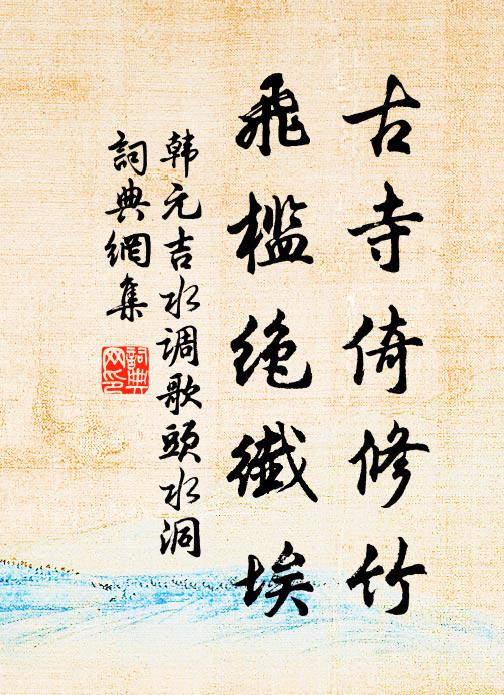 古寺倚修竹
飛檻絶纖埃
韩元吉水调歌頭水洞
詞典網集
詞典網印